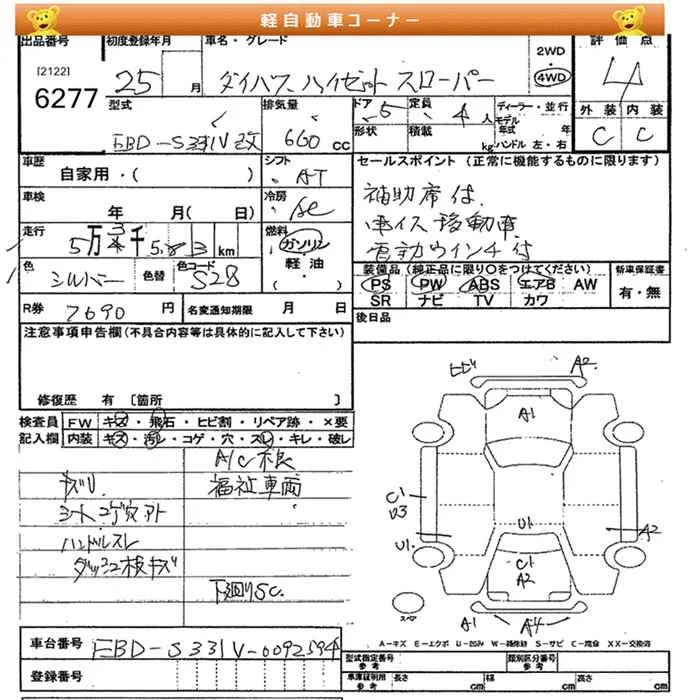 軽自動車コーナー
出品番号 初度登録年月 車名・グレード 評価点
[2122] 6277
25 月 ダイハツ ハイゼット スローパー
2WD
4WD
4
型式 排気量 ドア 5 定員 4 人 ディーラー・並行
外装 内装
EBD-S331V改 660 CC
形状 積載 kg
モデル年式 年
ハンドル 左・右
C C
車歴 シフト セールスポイント (正常に機能するものに限ります)
自家用・( ) AT
補助席付
車検 冷房
年 月( 日) AC
車イス移動車
走行 燃料
5万 千 583 km ガソリン
電動ウインチ付
軽・油
( ・ )
色 シルバー 色替 色コード S28
装備品 (純正品に限り○をつけてください) 新車保証書
PS PW ABS エアB AW
有・無
SR ナビ TV カワ
R券 7690 円 名変通知期限 月 日
後日品
注意事項申告欄(不具合内容等は具体的に記入して下さい)
修復歴 有 [箇所 ]
検査員 FW キズ・飛石・ヒビ割・リペア跡・×要
記入欄 内装 キズ・汚レ・コゲ・穴・スレ・キレ・破レ
A/C
福祉車両
ハンドルスレ
下廻りSC.
ヒビ A2
A1
C1
U3
U1
U1
A2
C1
A2
スペア
A1 A4
A-キズ E-エクボ U-凹み W-補修跡 S-サビ C-腐食 XX-交換済
車台番号 EBD-S331V-0092594
登録番号
型式指定番号 参考 類別区分番号 参考
車庫証明用 参考 長さ cm 幅 cm 高さ cm